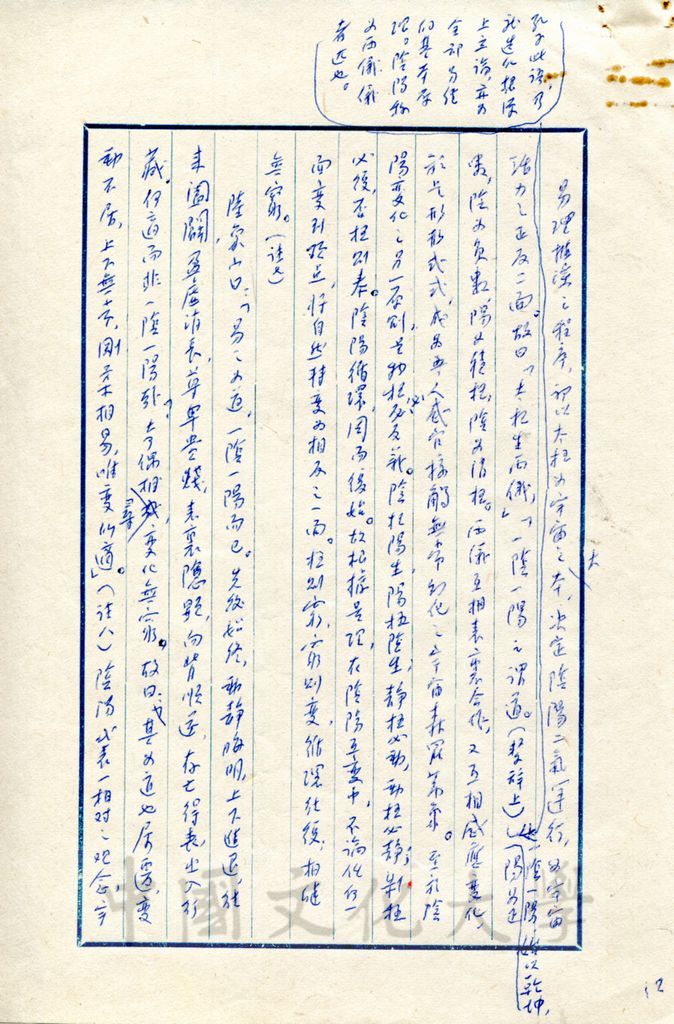 孔子此語，乃
就造化根源
上立論，亦為
全部易經
的基本原
理。陰陽移
為兩儀儀
者匹也。
易理推演之程序，初以太極為宇宙之本，決定陰陽二氣運行，為宇宙
大
活力之正反二面。故曰「太極生兩儀」，「一陰一陽之謂道。」（繫辭上）陽為正
一陰一陽，始以乾坤，
數，陰為負數，陽為積極，陰為消極。兩儀互相表裏合作，又互相感應變化，
形形式式，成為吾人感官接觸無常幻化之宇宙森羅萬象。至於陰
陽變化之另一原則，是物極必反，陰極陽生，陽極陰生，靜極必動，動極必靜；剝極
必復，否極則泰。陰陽循環，周而復始。故根據是理，在陰陽互變中，不論任何一
面變到頂點，將自然轉變為相反之一面。極則窮，窮則變，循環往復，相繼
無窮。（註七）
陸象山曰：「易之為道，一陰一陽而已。先後始終，動靜晦明，上下進退，往
來闔闢，盈虛消長，尊卑貴賤，表裏隱顯，向背順逆，存亡得喪，出入行
藏。何適而非一陰一陽哉？奇偶相尋，變化無窮。故曰：『其為道也屢遷，變
動不居，上下無常，剛柔相易，唯變所適』」（註八）陰陽代表一相對之觀念，宇
中國文化大學
12